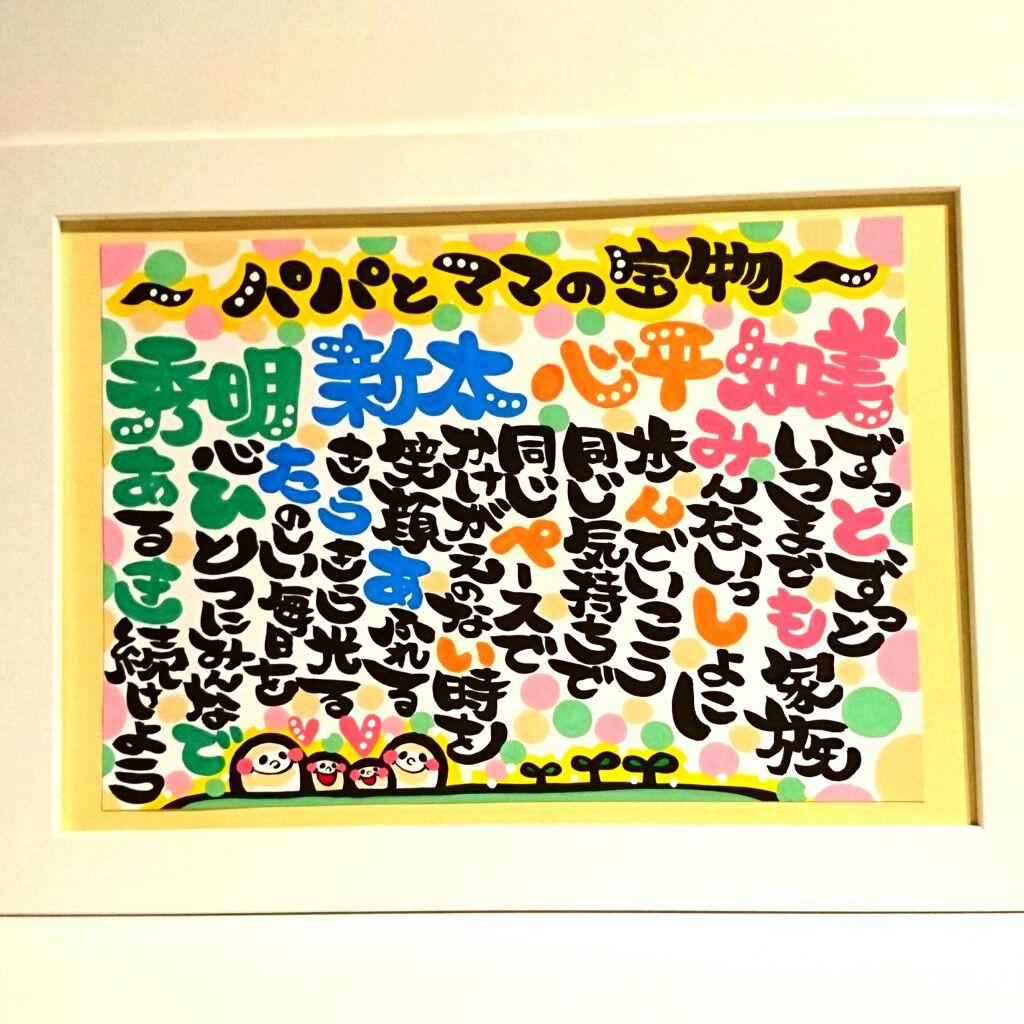 ～パパとママの宝物～
知美
ずっとずっと
いつまでも家族
みんないっしょに
心平
歩んでいこう
同じ気持ちで
同じペースで
新太
かけがえのない時を
笑顔あふれる
きらきら光る
たのしい毎日を
秀明
心ひとつにみんなで
あるき続けよう